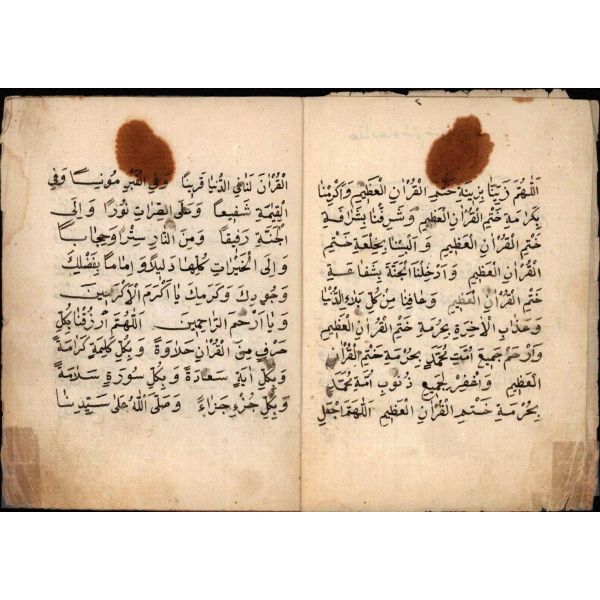 اَللّٰهُمَّ زَيِّنَّا بِزِينَةِ خَتْمِ الْقُرْاٰنِ الْعَظِيمِ وَاَكْرِمْنَا
بِكَرَامَةِ خَتْمِ الْقُرْاٰنِ الْعَظِيمِ وَشَرِّفْنَا بِشَرَافَةِ
خَتْمِ الْقُرْاٰنِ الْعَظِيمِ وَاَلْبِسْنَا بِخِلْعَةِ خَتْمِ
الْقُرْاٰنِ الْعَظِيمِ وَاَدْخِلْنَا الْجَنَّةَ بِشَفَاعَةِ
خَتْمِ الْقُرْاٰنِ الْعَظِيمِ وَعَافِنَا مِنْ كُلِّ بَلَاءِ الدُّنْيَا
وَعَذَابِ الْاٰخِرَةِ بِحُرْمَةِ خَتْمِ الْقُرْاٰنِ الْعَظِيمِ
وَارْحَمْ جَمِيعَ اُمَّتِ مُحَمَّدٍ بِحُرْمَةِ خَتْمِ الْقُرْاٰنِ
الْعَظِيمِ وَاغْفِرْ جَمِيعَ ذُنُوبِ اُمَّةِ مُحَمَّدٍ
بِحُرْمَةِ خَتْمِ الْقُرْاٰنِ الْعَظِيمِ اَللّٰهُمَّ اجْعَلِ
الْقُرْاٰنَ لَنَا فِي الدُّنْيَا قَرِينًا وَفِي الْقَبْرِ مُونِسًا وَفِي
الْقِيٰمَةِ شَفِيعًا وَعَلَى الصِّرَاتِ نُورًا وَاِلَى
الْجَنَّةِ رَفِيقًا وَمِنَ النَّارِ سِتْرًا وَحِجَابًا
وَاِلَى الْخَيْرَاتِ كُلِّهَا دَلِيلًا وَاِمَامًا بِفَضْلِكَ
وَجُودِكَ وَكَرَمِكَ يَا اَكْرَمَ الْاَكْرَمِينَ
وَيَا اَرْحَمَ الرَّاحِمِينَ اَللّٰهُمَّ ارْزُقْنَا بِكُلِّ
حَرْفٍ مِنَ الْقُرْاٰنِ حَلَاوَةً وَبِكُلِّ كَلِمَةٍ كَرَامَةً
وَبِكُلِّ اٰيَةٍ سَعَادَةً وَبِكُلِّ سُورَةٍ سَلَامَةً
وَبِكُلِّ جُزْءٍ جَزَاءً وَصَلَّى اللّٰهُ عَلٰى سَيِّدِنَا